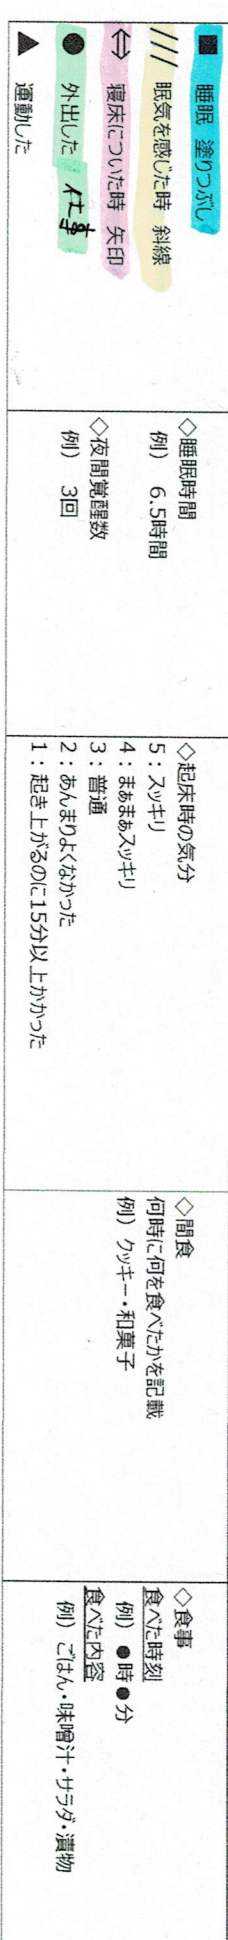 ■ 睡眠 塗りつぶし
/// 眠気を感じた時 斜線
⇔ 寝床についた時 矢印
● 外出した 仕事
▲ 運動した
◇睡眠時間
例) 6.5時間
◇夜間覚醒数
例) 3回
◇起床時の気分
5:スッキリ
4:まぁまぁスッキリ
3:普通
2:あんまりよくなかった
1:起き上がるのに15分以上かかった
◇間食
何時に何を食べたかを記載
例) クッキー・和菓子
◇食事
食べた時刻
例) ●時●分
食べた内容
例) ごはん・味噌汁・サラダ・漬物